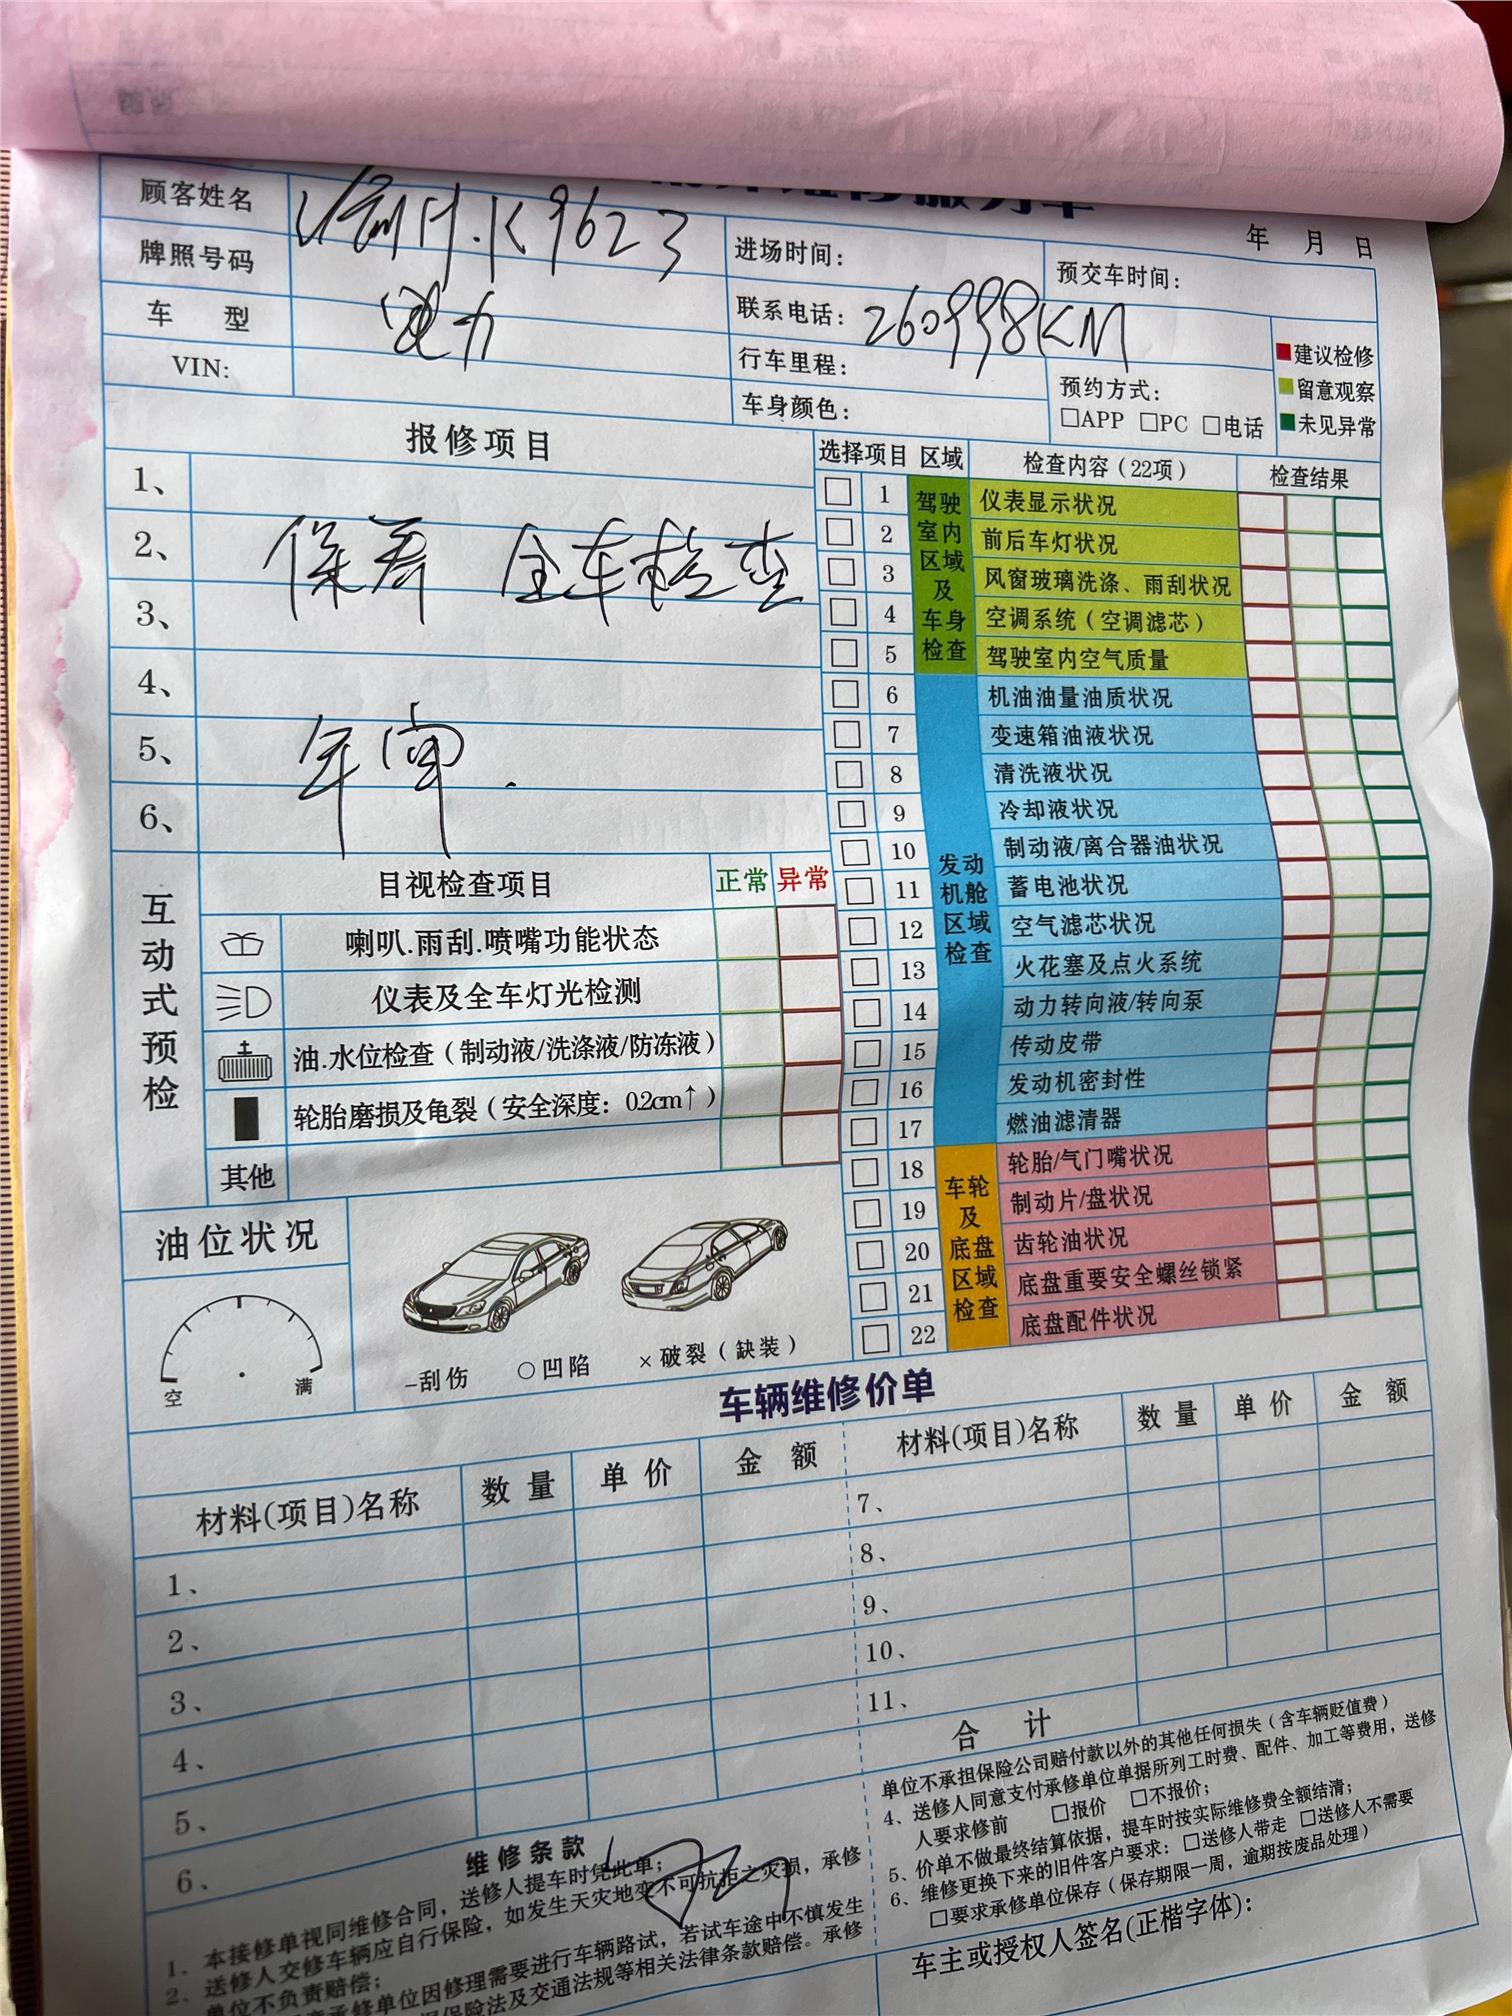 年 月 日
顾客姓名
K9623
牌照号码
进场时间：
预交车时间：
车 型
联系电话：
260998KM
VIN:
行车里程：
预约方式：
□APP □PC □电话
车身颜色：
建议检修
留意观察
未见异常
报修项目
1、
2、
保养 全车检查
3、
4、
5、
年审
6、
选择项目 区域 检查内容（22项） 检查结果
驾驶室内区域及车身检查
1 仪表显示状况
2 前后车灯状况
3 风窗玻璃洗涤、雨刮状况
4 空调系统（空调滤芯）
5 驾驶室内空气质量
发动机舱区域检查
6 机油油量油质状况
7 变速箱油液状况
8 清洗液状况
9 冷却液状况
10 制动液/离合器油状况
11 蓄电池状况
12 空气滤芯状况
13 火花塞及点火系统
14 动力转向液/转向泵
15 传动皮带
16 发动机密封性
17 燃油滤清器
车轮及底盘区域检查
18 轮胎/气门嘴状况
19 制动片/盘状况
20 齿轮油状况
21 底盘重要安全螺丝锁紧
22 底盘配件状况
互动式预检
目视检查项目 正常 异常
喇叭.雨刮.喷嘴功能状态
仪表及全车灯光检测
油.水位检查（制动液/洗涤液/防冻液）
轮胎磨损及龟裂（安全深度：0.2cm↑）
其他
油位状况
空 满
-刮伤 ○凹陷 ×破裂（缺装）
车辆维修价单
材料(项目)名称 数 量 单 价 金 额
1、
2、
3、
4、
5、
6、
材料(项目)名称 数 量 单 价 金 额
7、
8、
9、
10、
11、
合 计
维修条款
1、本接修单视同维修合同，送修人提车时凭此单；
2、送修人交修车辆应自行保险，如发生天灾地变不可抗拒之灾损，承修
单位不负责赔偿；
承修单位因修理需要进行车辆路试，若试车途中不慎发生
保险法及交通法规等相关法律条款赔偿。承修
单位不承担保险公司赔付款以外的其他任何损失（含车辆贬值费）
4、送修人同意支付承修单位单据所列工时费、配件、加工等费用，送修
人要求修前 □报价 □不报价；
5、价单不做最终结算依据，提车时按实际维修费全额结清；
6、维修更换下来的旧件客户要求：□送修人带走 □送修人不需要
□要求承修单位保存（保存期限一周，逾期按废品处理）
车主或授权人签名(正楷字体)：